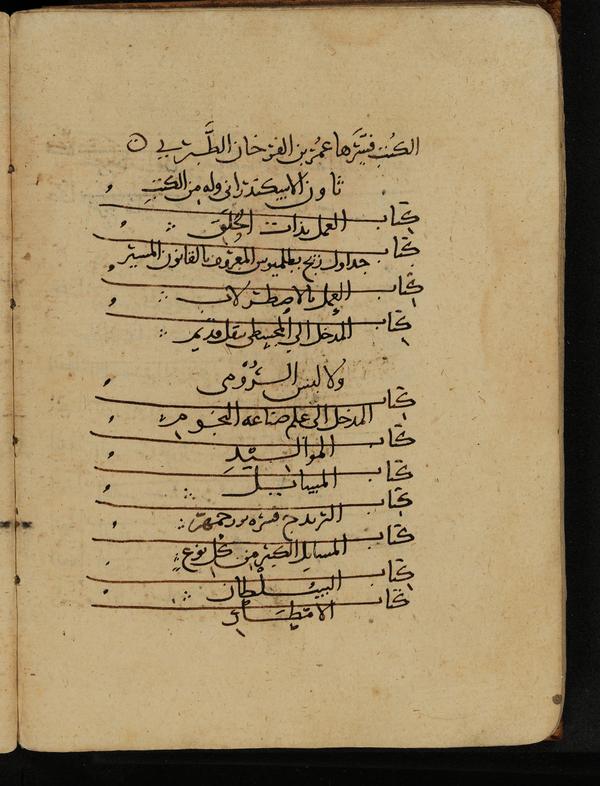 الكتب فسّرها عمر بن الفرخان الطَّبري
ثاون الاسكندراني وله من الكتب
كتاب العمل بذات الحلق
كتاب جداول زيج بطلميوس المعروف بالقانون المسير
كتاب العمل بالاصطرلاب
كتاب المدخل الي المجسطي بنقل قديم
ولاليس الرُّومي
كتاب المدخل الى علم صناعه النجوم
كتاب المواليد
كتاب المسايل
كتاب البزيدج فسره بزرجمهر
كتاب المسايل الكبير من كل نوع
كتاب السلطان
كتاب الامطار